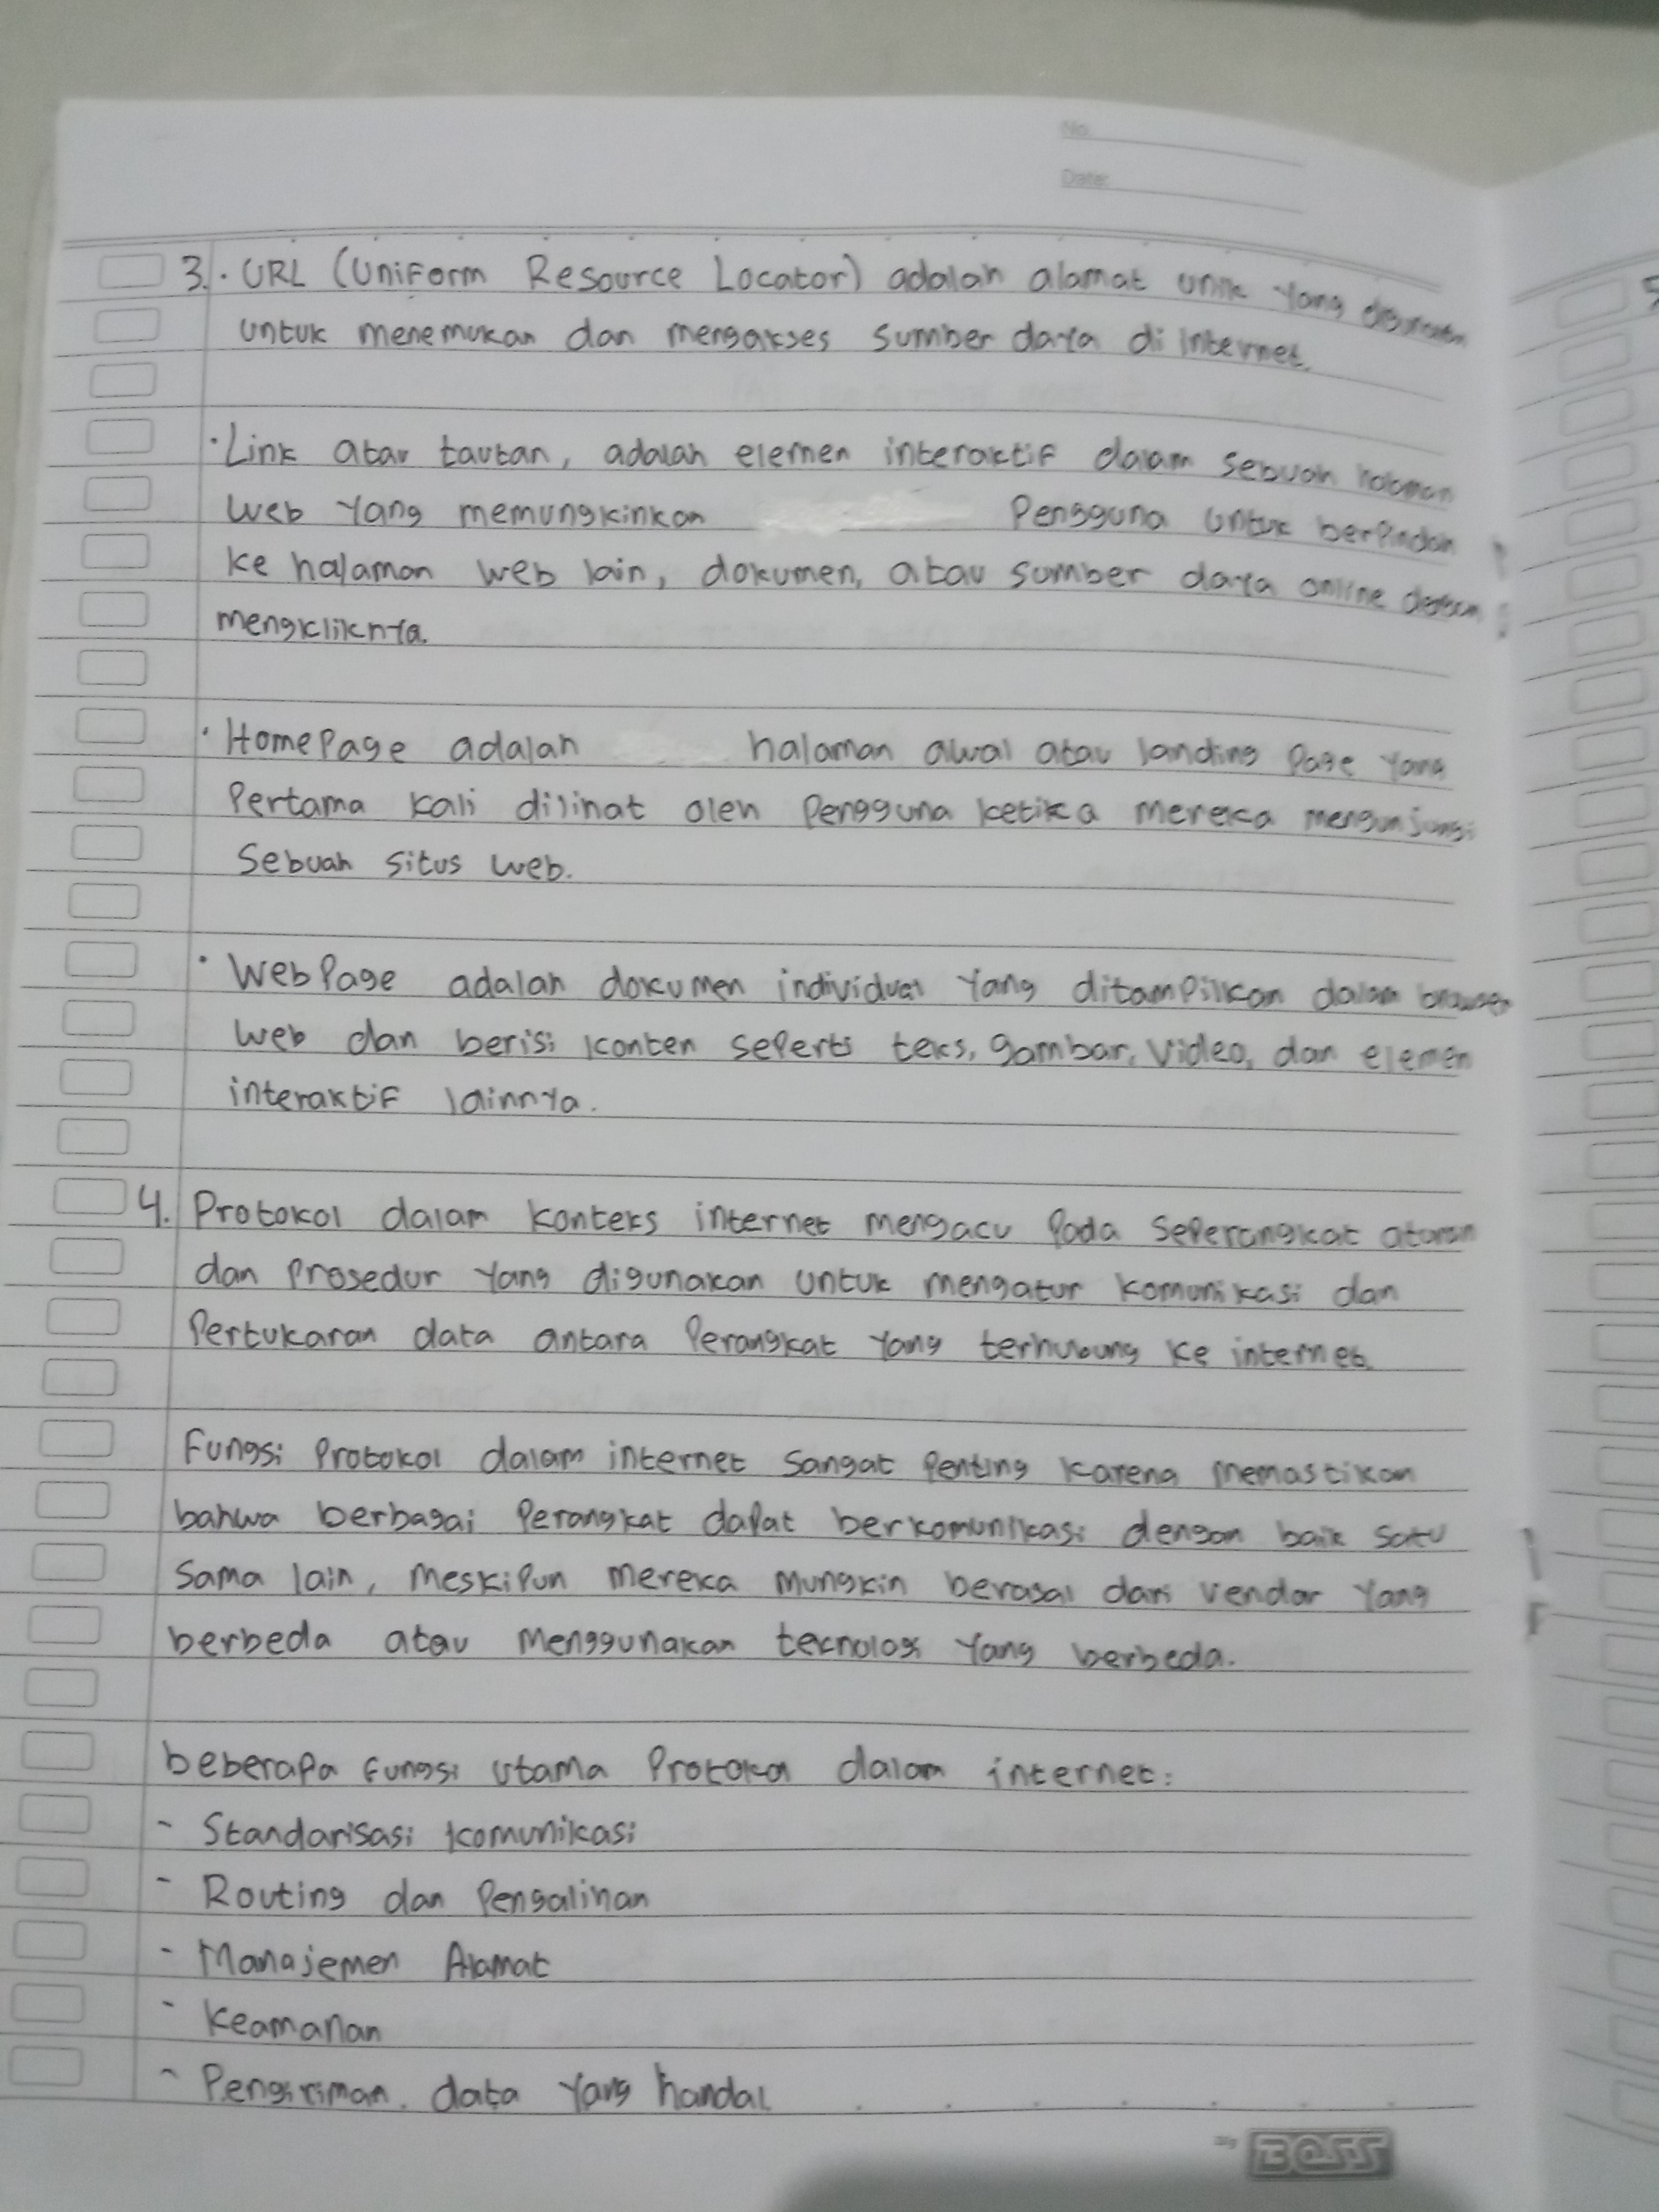 No.
Date:
3. · URL (Uniform Resource Locator) adalah alamat unik yang digunakan
untuk menemukan dan mengakses sumber daya di internet.
· Link atau tautan, adalah elemen interaktif dalam sebuah halaman
web yang memungkinkan Pengguna untuk berpindah
ke halaman web lain, dokumen, atau sumber daya online dengan
mengkliknya.
· HomePage adalah halaman awal atau landing Page yang
Pertama kali dilihat oleh Pengguna ketika mereka mengunjungi
sebuah situs web.
· WebPage adalah dokumen individual yang ditampilkan dalam browser
web dan berisi konten seperti teks, gambar, video, dan elemen
interaktif lainnya.
4. Protokol dalam konteks internet mengacu Pada seperangkat aturan
dan Prosedur yang digunakan untuk mengatur komunikasi dan
Pertukaran data antara Perangkat yang terhubung ke internet.
Fungsi Protokol dalam internet sangat Penting karena memastikan
bahwa berbagai Perangkat dapat berkomunikasi dengan baik satu
sama lain, meskipun mereka mungkin berasal dari vendor yang
berbeda atau menggunakan teknologi yang berbeda.
beberapa fungsi utama Protokol dalam internet:
- Standarisasi komunikasi
- Routing dan Pengalihan
- Manajemen Alamat
- Keamanan
- Pengiriman data yang handal
BOSS